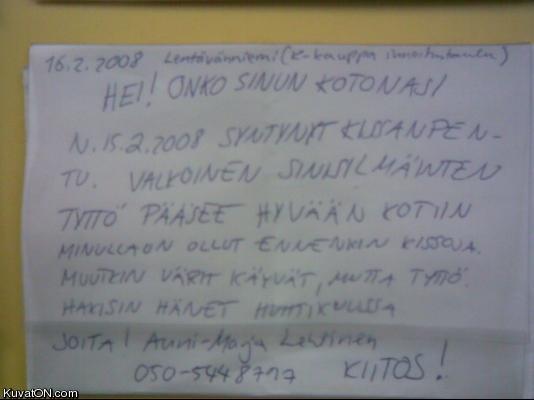 16.2.2008 Lentävänniemi (K-kauppa ilmoitustaulu)
HEI! ONKO SINUN KOTONASI
N. 15.2.2008 SYNTYNYT KISSANPEN-
TU. VALKOINEN SINISILMÄINEN
TYTTÖ PÄÄSEE HYVÄÄN KOTIIN
MINULLA ON OLLUT ENNENKIN KISSOJA.
MUUTKIN VÄRIT KÄYVÄT, MUTTA TYTTÖ.
HAKISIN HÄNET HUHTIKUUSSA
SOITA! Anni-Marja Lehtinen
050-5448717 KIITOS!
KuvatON.com